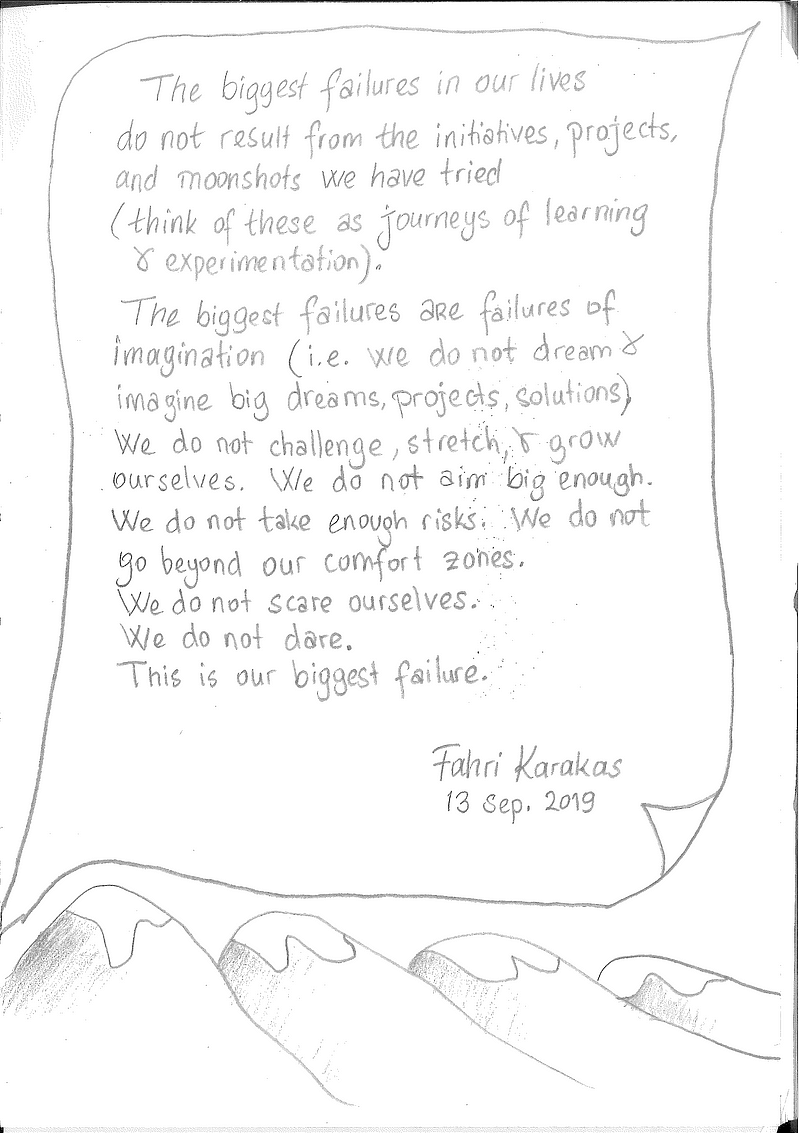 The biggest failures in our lives
do not result from the initiatives, projects,
and moonshots we have tried
(think of these as journeys of learning
& experimentation).
The biggest failures are failures of
imagination (i.e. we do not dream &
imagine big dreams, projects, solutions)
We do not challenge, stretch, & grow
ourselves. We do not aim big enough.
We do not take enough risks. We do not
go beyond our comfort zones.
We do not scare ourselves.
We do not dare.
This is our biggest failure.
Fahri Karakas
13 Sep. 2019